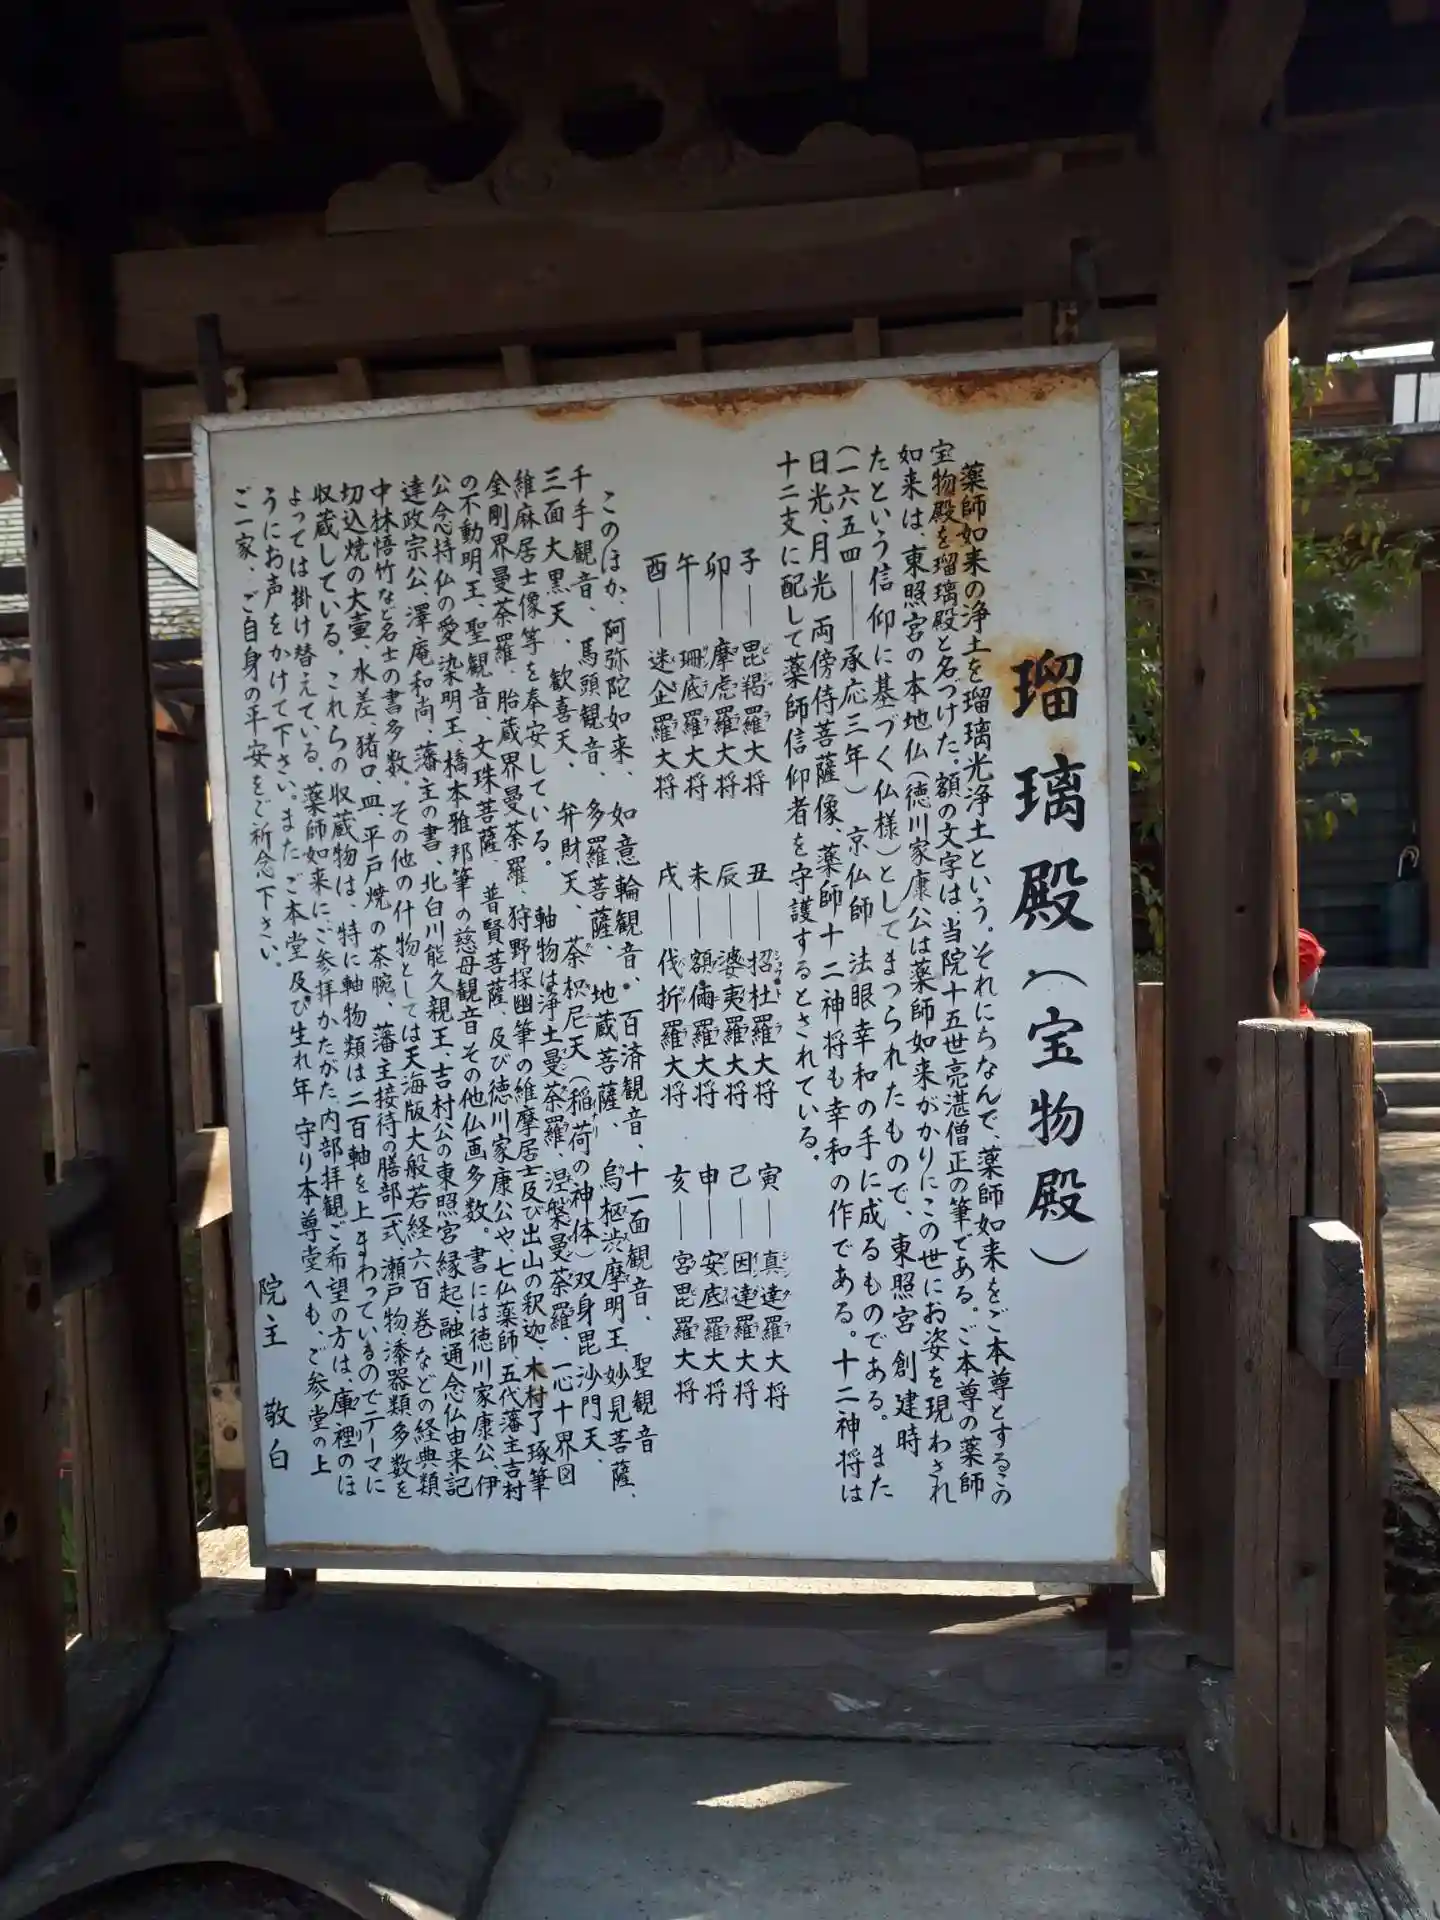 瑠璃殿（宝物殿）
薬師如来の浄土を瑠璃光浄土という。それにちなんで、薬師如来をご本尊とするこの
宝物殿を瑠璃殿と名づけた。額の文字は、当院十五世亮湛僧正の筆である。ご本尊の薬師
如来は、東照宮の本地仏（徳川家康公は薬師如来がかりにこの世にお姿を現わされ
たという信仰に基づく仏様）としてまつられたもので、東照宮創建時
（一六五四――承応三年）京仏師 法眼幸和の手に成るものである。また
日光、月光 両傍侍菩薩像、薬師十二神将も幸和の作である。十二神将は
十二支に配して薬師信仰者を守護するとされている。
子――毘羯羅大将 丑――招杜羅大将 寅――真達羅大将
卯――摩虎羅大将 辰――婆夷羅大将 己――因達羅大将
午――珊底羅大将 未――額儞羅大将 申――安底羅大将
酉――迷企羅大将 戌――伐折羅大将 亥――宮毘羅大将
このほか、阿弥陀如来、如意輪観音、百済観音、十一面観音、聖観音
千手観音、馬頭観音、多羅菩薩、地蔵菩薩、烏枢渋摩明王、妙見菩薩、
三面大黒天、歓喜天、弁財天、荼枳尼天（稲荷の神体）双身毘沙門天、
維麻居士像等を奉安している。軸物は浄土曼荼羅、涅槃曼荼羅、一心十界図
金剛界曼荼羅、胎蔵界曼荼羅、狩野探幽筆の維摩居士及び出山の釈迦、木村了琢筆
の不動明王、聖観音、文珠菩薩、普賢菩薩、及び徳川家康公や、七仏薬師、五代藩主吉村
公念持仏の愛染明王、橋本雅邦筆の慈母観音その他仏画多数。書には徳川家康公、伊
達政宗公、澤庵和尚、藩主の書、北白川能久親王、吉村公の東照宮縁起、融通念仏由来記
中林悟竹など名士の書多数。その他の什物としては天海版大般若経六百巻などの経典類
切込焼の大壷、水差、猪口、皿、平戸焼の茶腕、藩主接待の膳部一式、瀬戸物、漆器類、多数を
収蔵している。これらの収蔵物は、特に軸物類は二百軸を上まわっているのでテーマに
よっては掛け替えている。薬師如来に、ご参拝かたがた、内部拝観ご希望の方は、庫裡のほ
うにお声をかけて下さい。またご本堂及び生れ年 守り本尊堂へも、ご参堂の上
ご一家、ご自身の平安をご祈念下さい。
院主 敬白